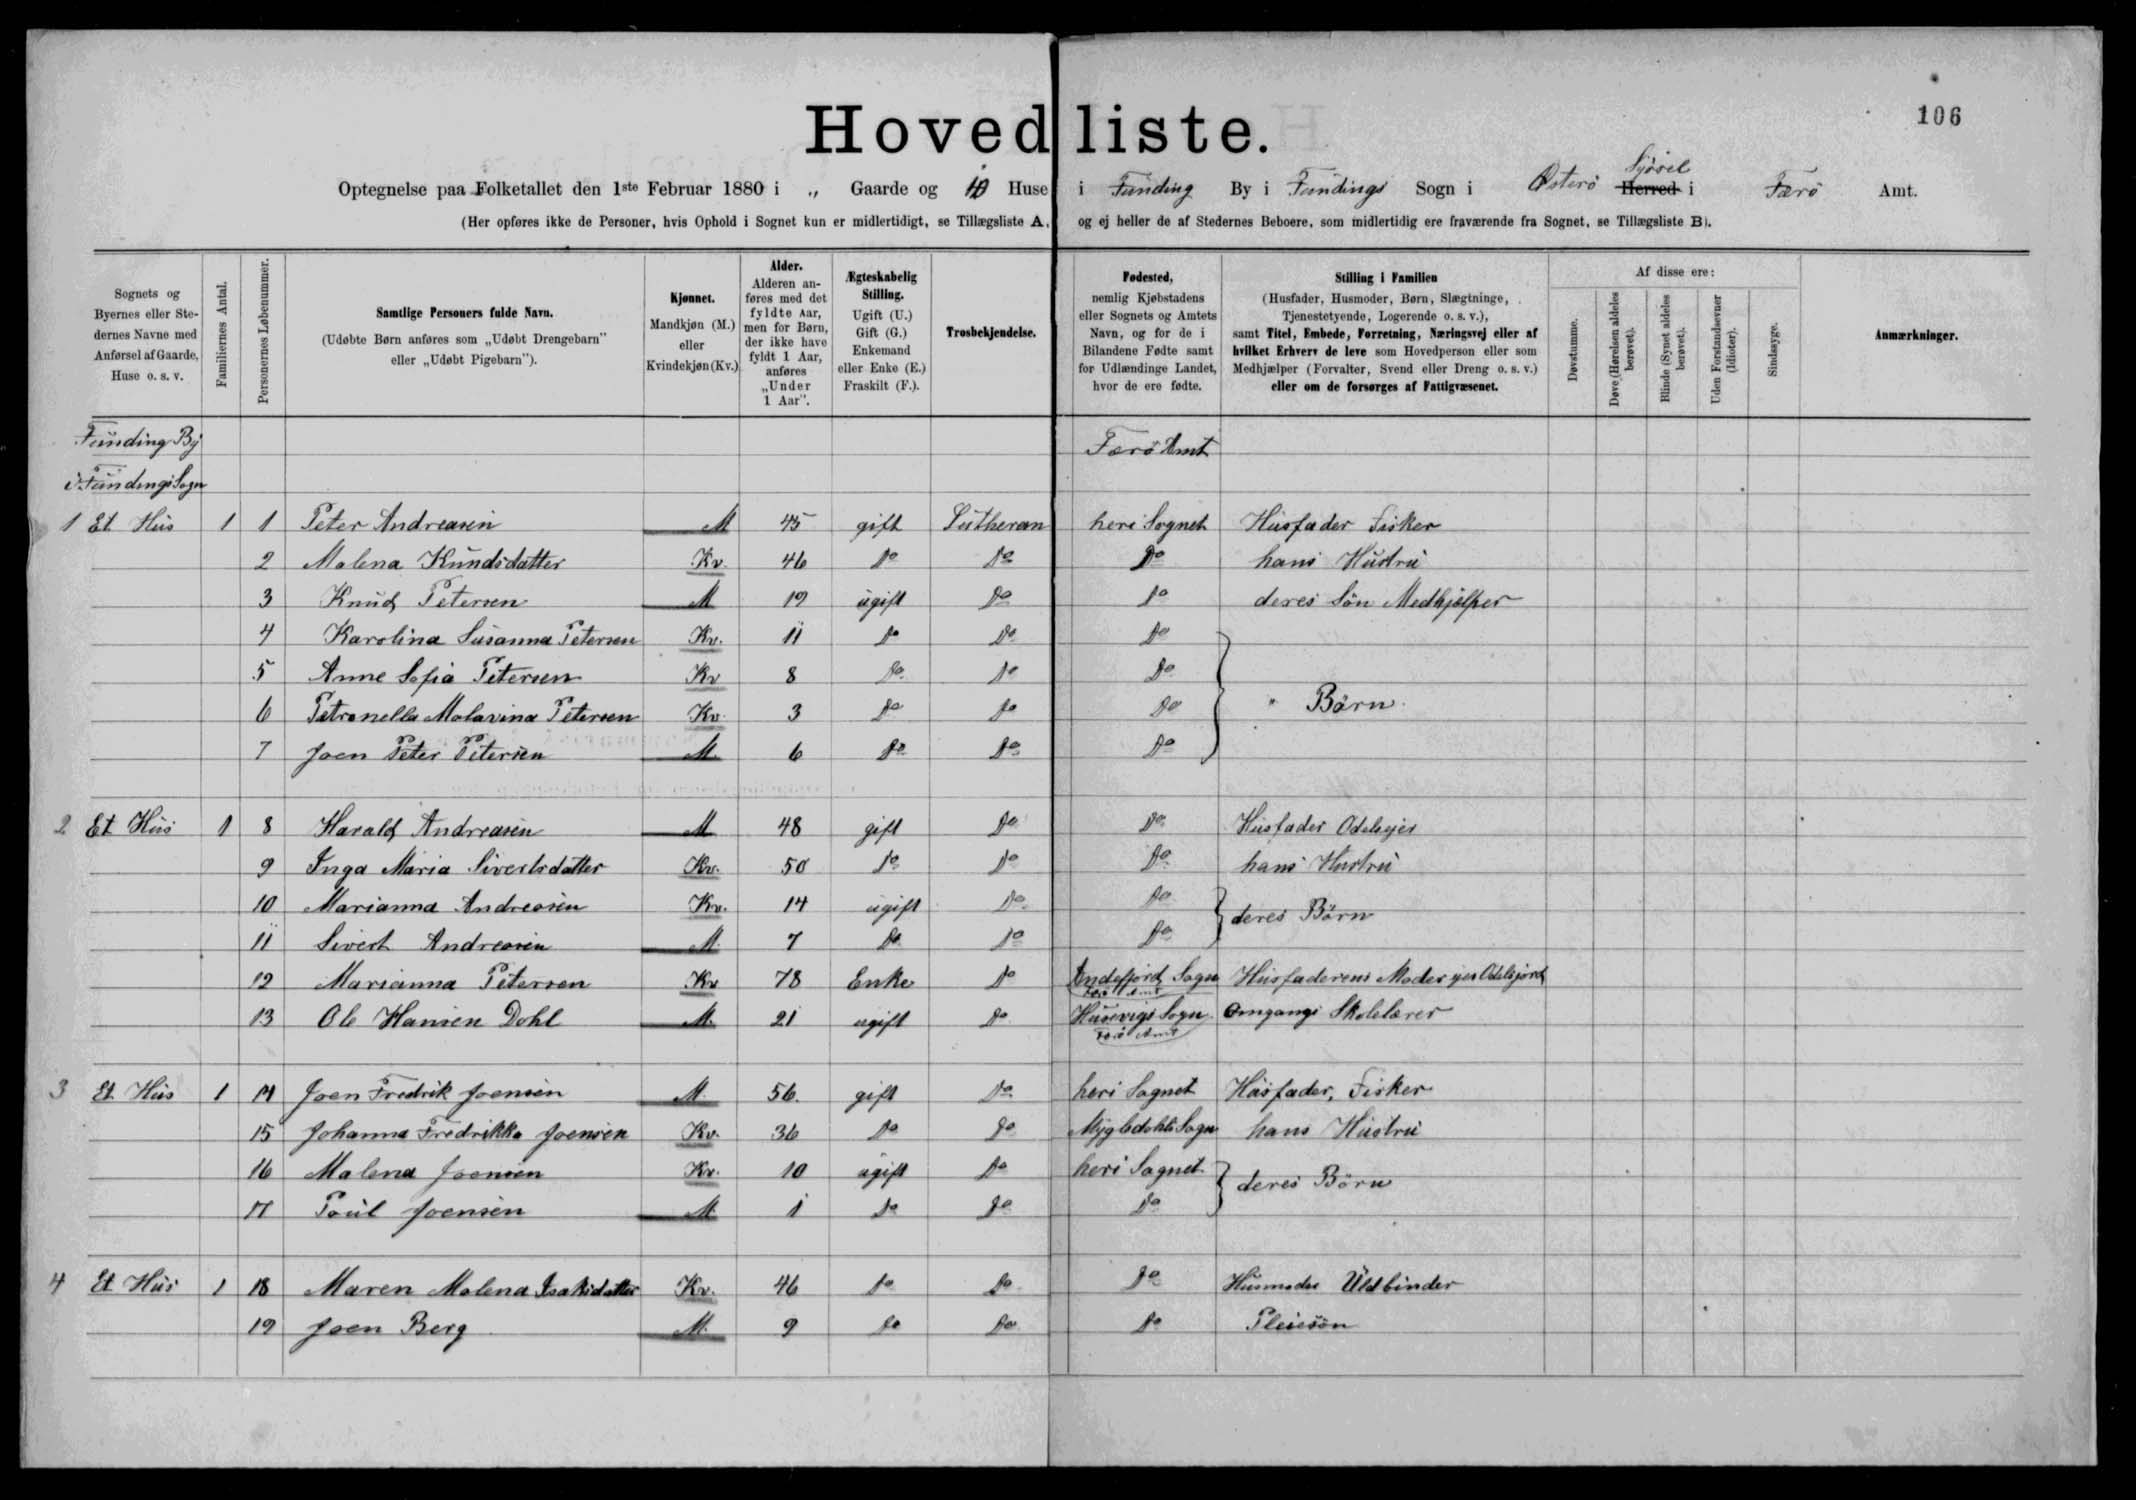 106
Hovedliste.
Optegnelse paa Folketallet den 1ste Februar 1880 i „ Gaarde og 10 Huse i Funding By i Fundings Sogn i Østerö Herred Sysel i Færö Amt.
(Her opføres ikke de Personer, hvis Ophold i Sognet kun er midlertidigt, se Tillægsliste A, og ej heller de af Stedernes Beboere, som midlertidig ere fraværende fra Sognet, se Tillægsliste B).
Sognets og Byernes eller Stedernes Navne med Anførsel af Gaarde, Huse o. s. v.
Familiernes Antal.
Personernes Løbenummer.
Samtlige Personers fulde Navn.
(Udøbte Børn anføres som „Udøbt Drengebarn” eller „Udøbt Pigebarn”).
Kjønnet.
Mandkjøn (M.) eller Kvindekjøn (Kv.)
Alder.
Alderen anføres med det fyldte Aar, men for Børn, der ikke have fyldt 1 Aar, anføres „Under 1 Aar”.
Ægteskabelig Stilling.
Ugift (U.) Gift (G.) Enkemand eller Enke (E.) Fraskilt (F.).
Trosbekjendelse.
Fødested,
nemlig Kjøbstadens eller Sognets og Amtets Navn, og for de i Bilandene Fødte samt for Udlændinge Landet, hvor de ere fødte.
Stilling i Familien
(Husfader, Husmoder, Børn, Slægtninge, Tjenestetyende, Logerende o. s. v.), samt Titel, Embede, Forretning, Næringsvej eller af hvilket Erhverv de leve som Hovedperson eller som Medhjælper (Forvalter, Svend eller Dreng o. s. v.) eller om de forsørges af Fattigvæsenet.
Af disse ere:
Døvstumme.
Døve (Hørelsen aldeles berøvet).
Blinde (Synet aldeles berøvet).
Uden Forstandsevner (Idioter).
Sindssyge.
Anmærkninger.
Funding By Færö Amt
i Fundings Sogn
1 Et Hus 1 1 Peter Andreasen M 45 gift Lutheran heri Sognet Husfader Fisker
2 Malena Kundsdatter Kv. 46 Do Do Do hans Hustru
3 Knud Petersen M 19 ugift Do Do deres Sön Medhjælper
4 Karolina Susanna Petersen Kv. 11 Do Do Do
5 Anne Sofia Petersen Kv 8 Do Do Do
6 Petronella Malavina Petersen Kv. 3 Do Do Do " Börn
7 Joen Peter Petersen M. 6 Do Do Do
2 Et Hus 1 8 Harald Andreasen M 48 gift Do Do Husfader Odelsejer
9 Inga Maria Sivertsdatter Kv. 50 Do Do Do hans Hustru
10 Marianna Andreasen Kv. 14 ugift Do Do deres Börn
11 Sivert Andreasen M. 7 Do Do Do
12 Marianna Petersen Kv 78 Enke Do Andefjord Sogn Færö Amt Husfaderens Moder ejer Odelsjord
13 Ole Hansen Dohl M. 21 ugift Do Husevigs Sogn Færö Amt Omgangs Skolelærer
3 Et Hus 1 14 Joen Fredrik Joensen M. 56. gift Do heri Sognet Husfader, Fisker
15 Johanna Fredrikka Joensen Kv. 36 Do Do Mygledahls Sogn hans Hustru
16 Malena Joensen Kv. 10 ugift Do heri Sognet deres Börn
17 Poul Joensen M 1 Do Do Do
4 Et Hus 1 18 Maren Malena Isaksdatter Kv. 46 Do Do Do Husmoder Uldbinder
19 Joen Berg M. 9 Do Do Do Pleiesön